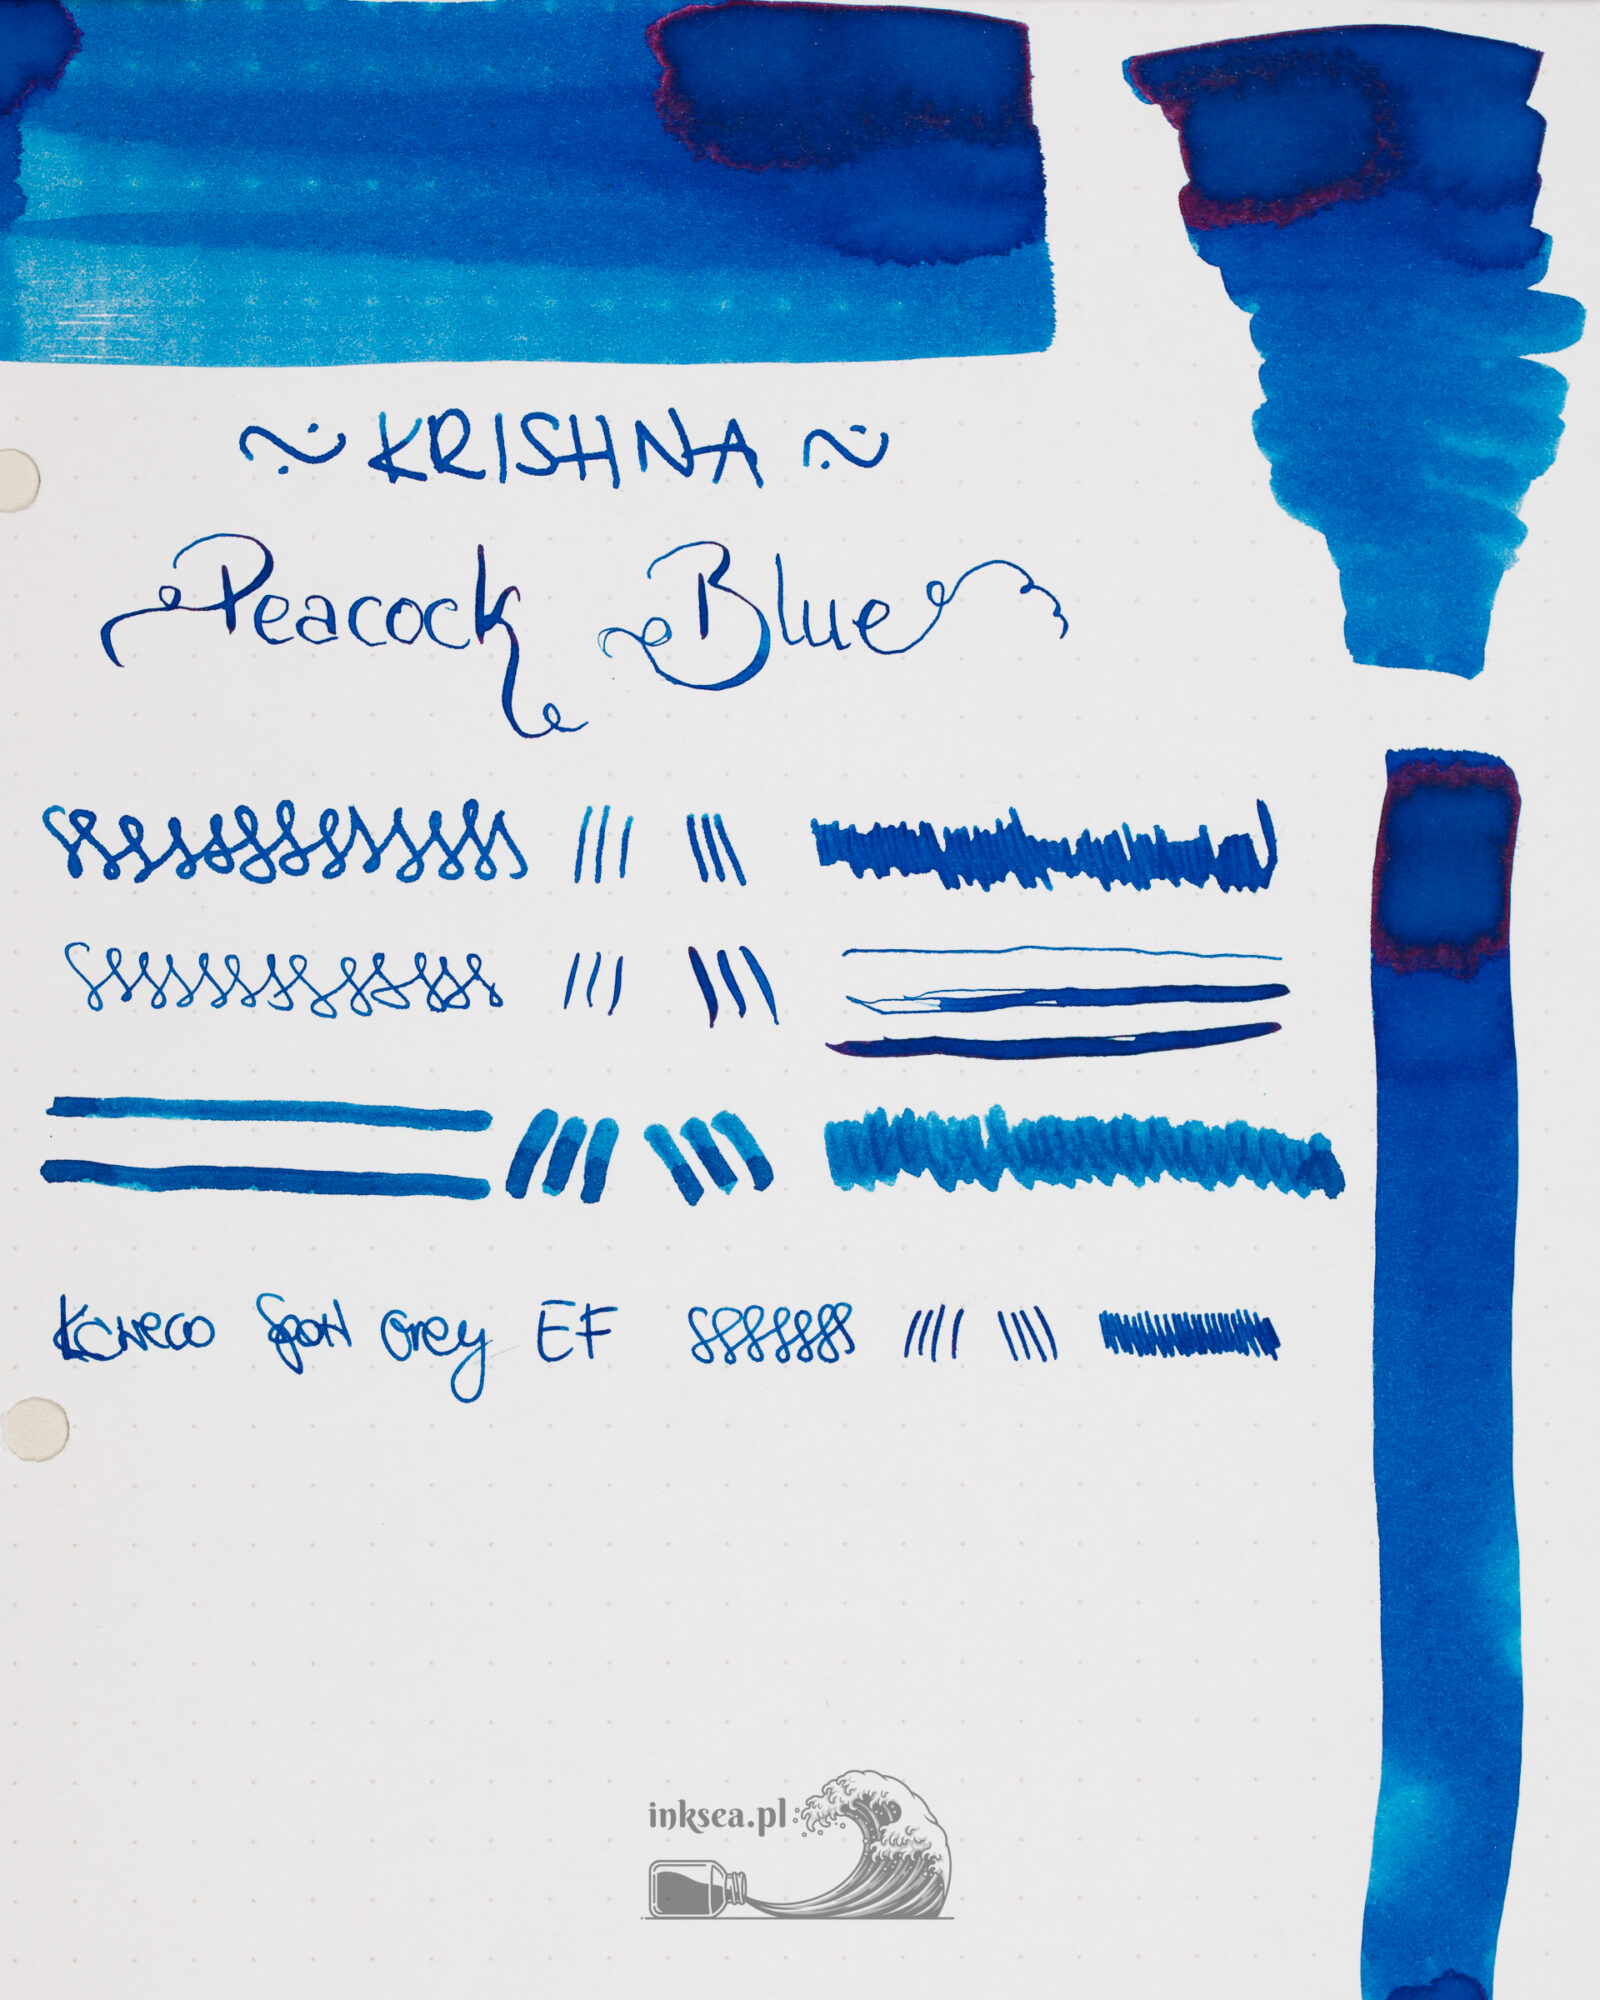 ~ KRISHNA ~
Peacock Blue
Kaweco Sport Grey EF
inksea.pl